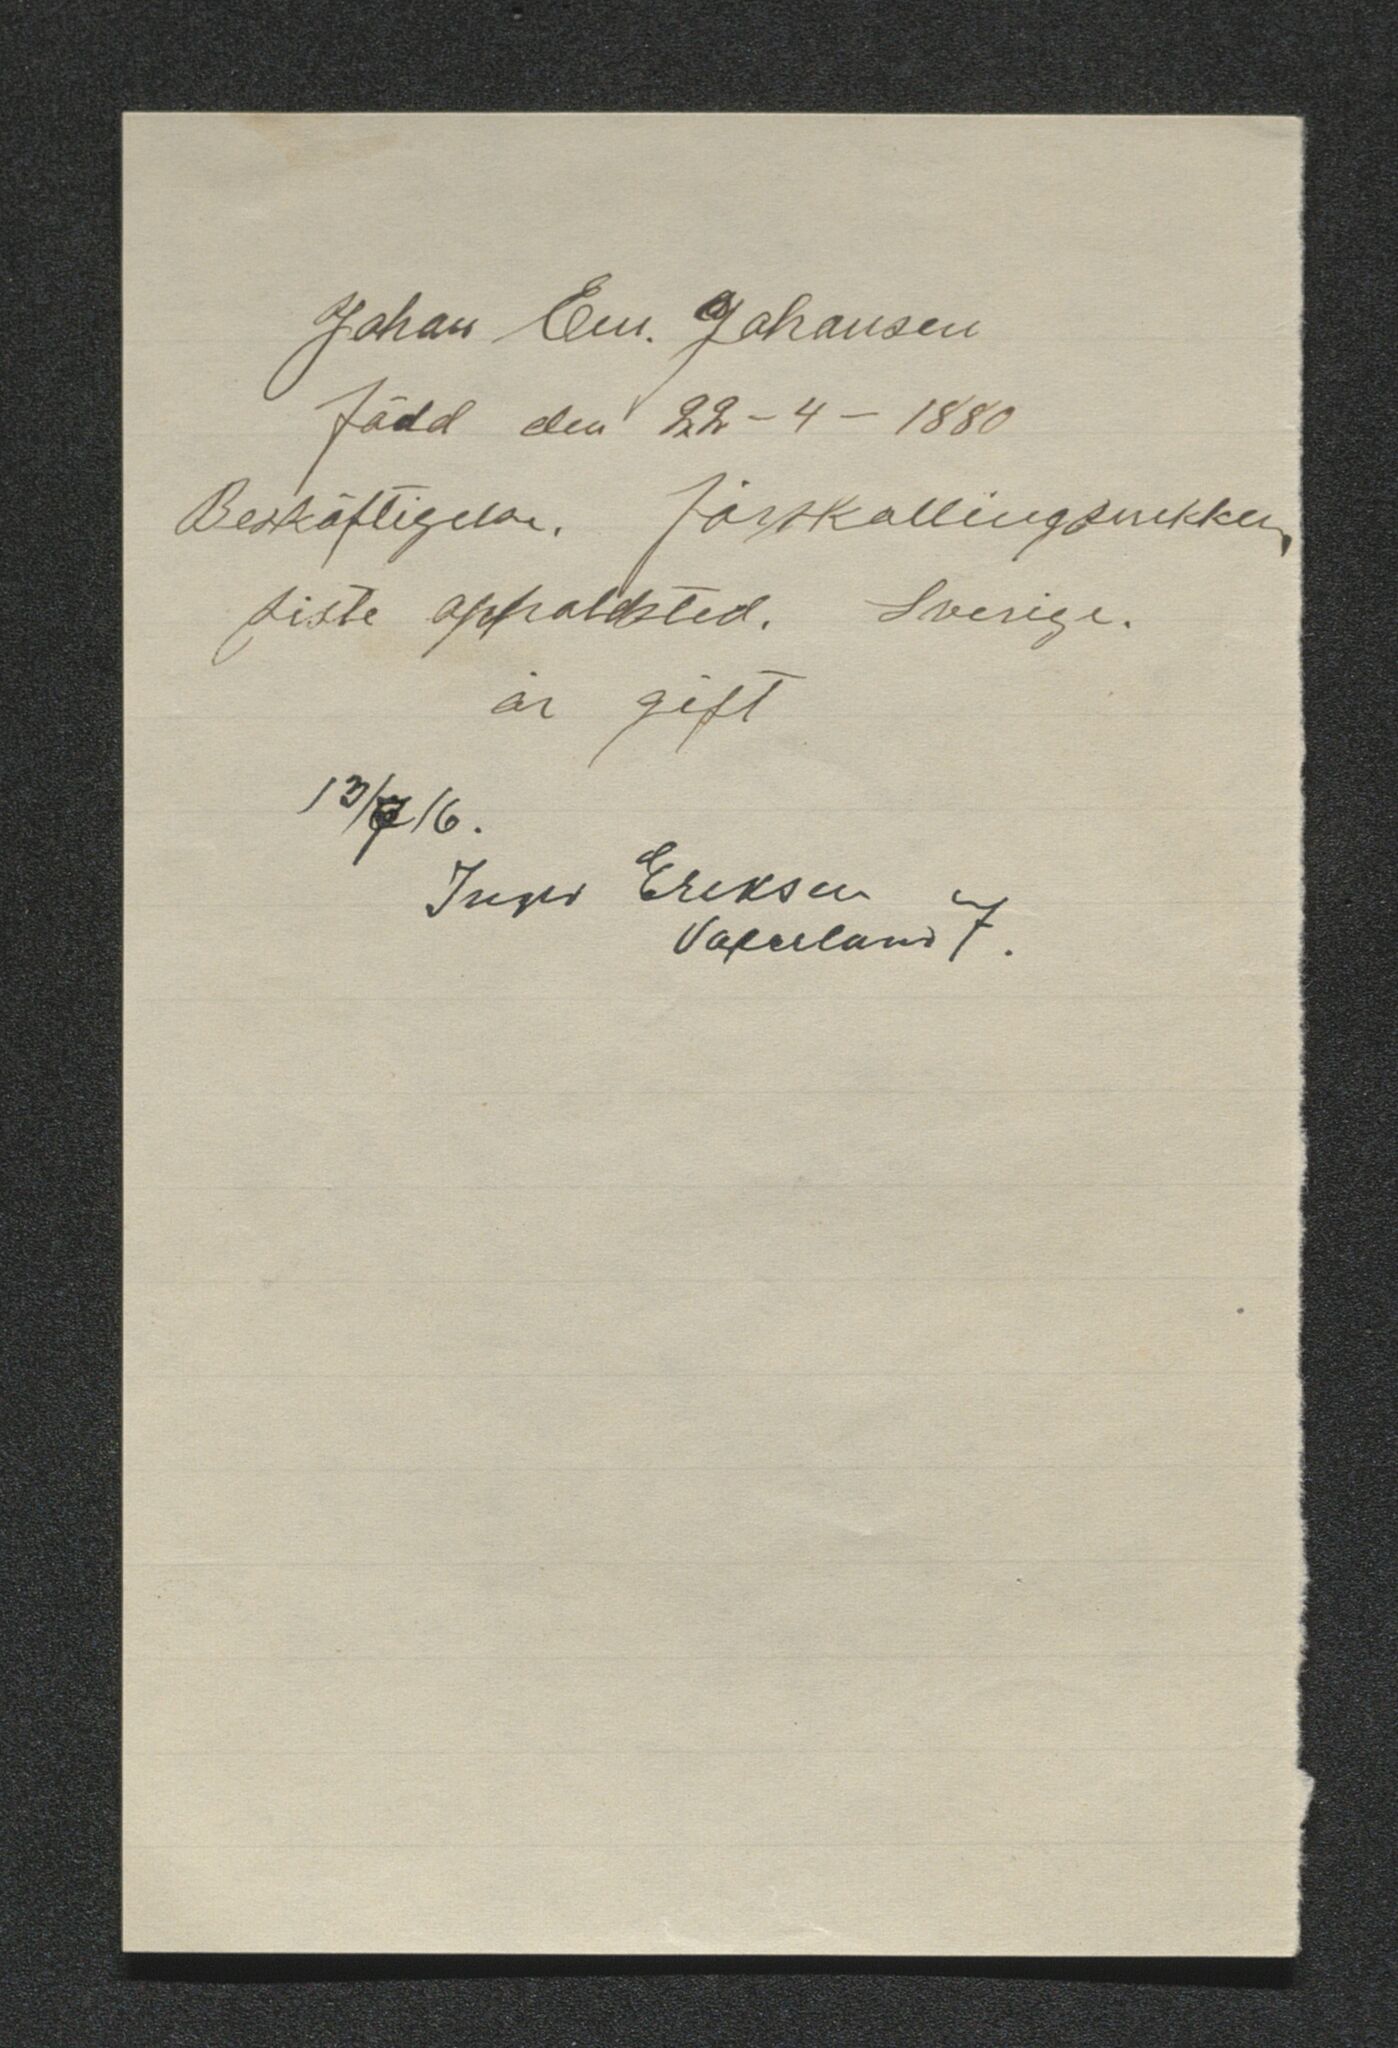 Johan Em. Johansen
född den 22-4-1880
Beskäftigelse. förskallingsnekker,
siste opholdsted. Sverige.
är gift
13/7 16.
Eriksen
Vaterland 7.